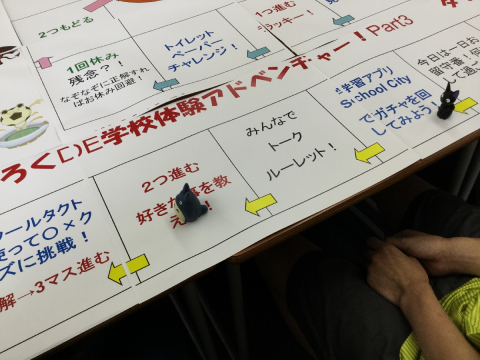 2つもどる
1回休み
残念?!
なぞなぞに正解すれ
ばお休み回避!
トイレット
ペーパー
チャレンジ!
1つ進む
ラッキー!
ろくDE学校体験アドベンチャー!Part3
今日は一日お
留守番!
学習アプリ
School City
でガチャを回
してみよう!
みんなで
トーク
ルーレット!
2つ進む
好きな
を教
え
ールタクト
使って〇×ク
ズに挑戦!
解→3マス進む